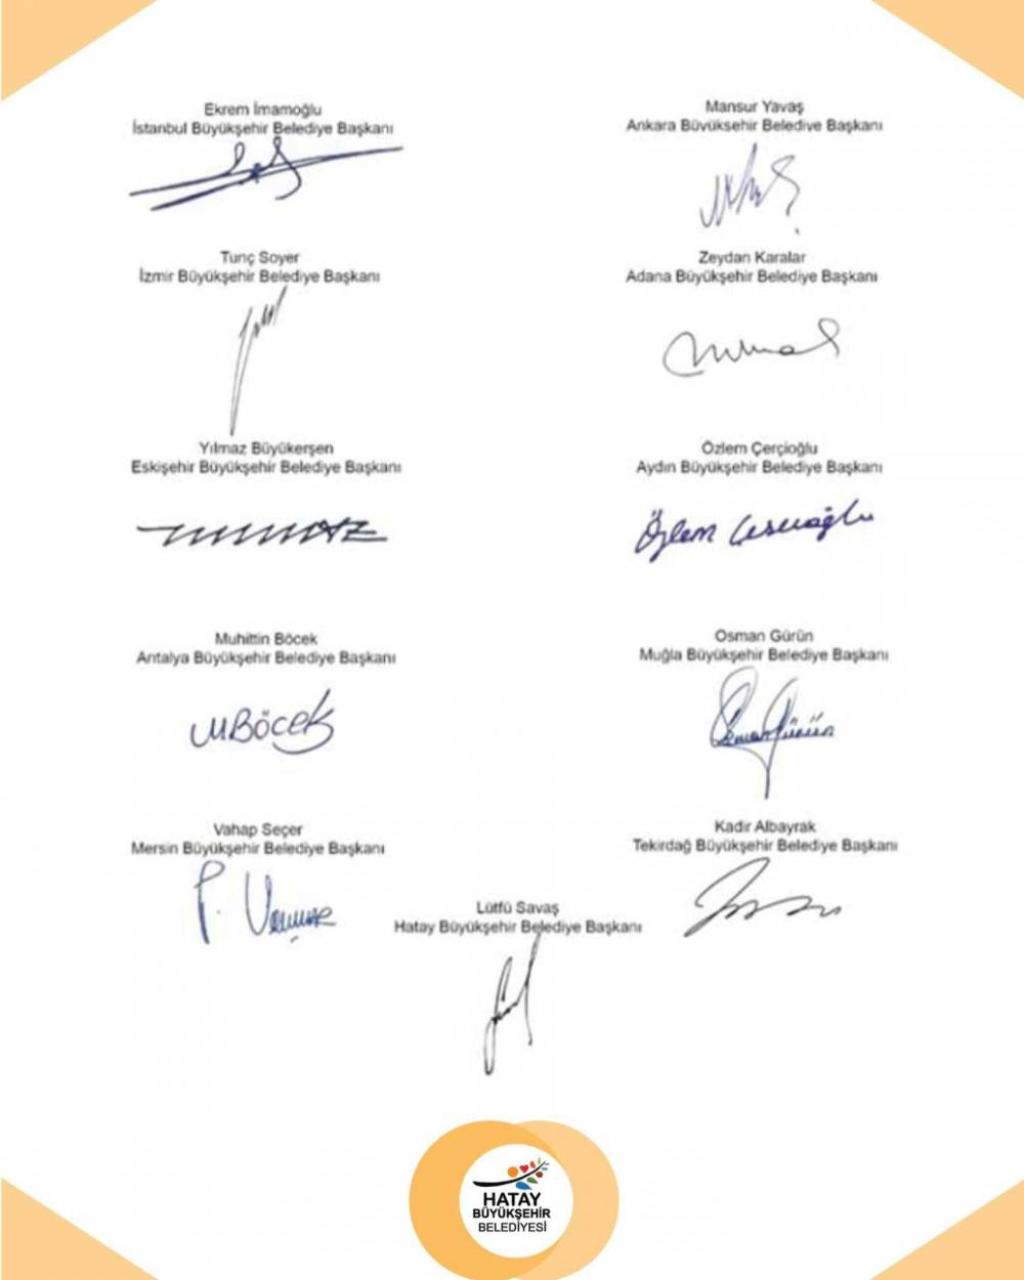 Ekrem İmamoğlu
İstanbul Büyükşehir Belediye Başkanı
Mansur Yavaş
Ankara Büyükşehir Belediye Başkanı
Tunç Soyer
İzmir Büyükşehir Belediye Başkanı
Zeydan Karalar
Adana Büyükşehir Belediye Başkanı
Yılmaz Büyükerşen
Eskişehir Büyükşehir Belediye Başkanı
Özlem Çerçioğlu
Aydın Büyükşehir Belediye Başkanı
Özlem Çerçioğlu
Muhittin Böcek
Antalya Büyükşehir Belediye Başkanı
MBöcek
Osman Gürün
Muğla Büyükşehir Belediye Başkanı
Osman Gürün
Vahap Seçer
Mersin Büyükşehir Belediye Başkanı
Kadir Albayrak
Tekirdağ Büyükşehir Belediye Başkanı
Lütfü Savaş
Hatay Büyükşehir Belediye Başkanı
HATAY
BÜYÜKŞEHİR
BELEDİYESİ